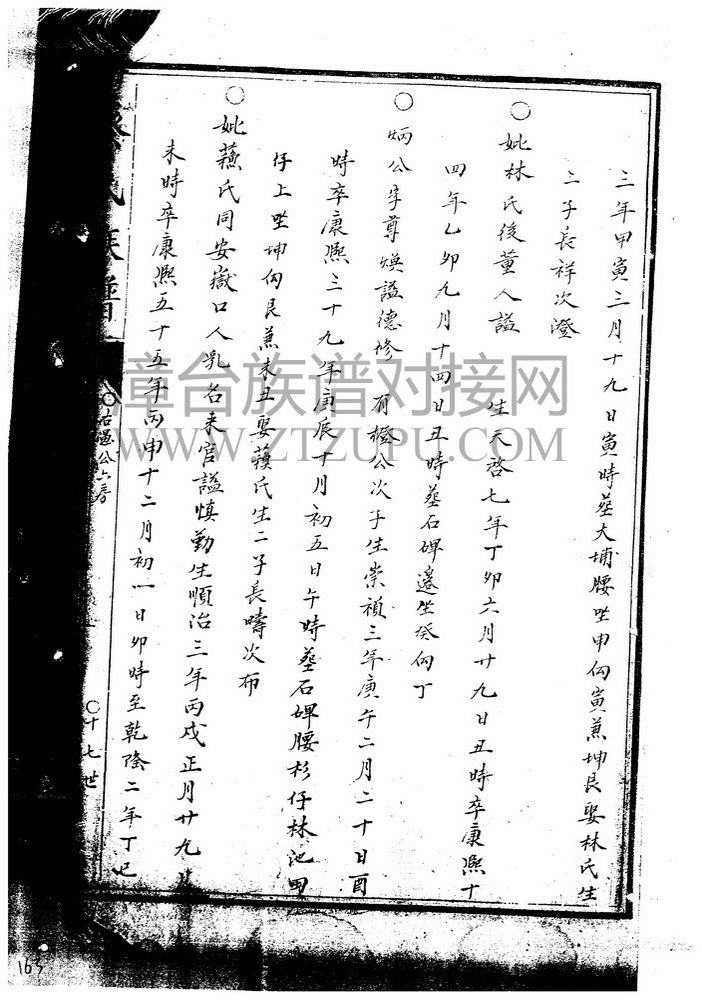 三年甲寅三月十九日寅時葬大埔腰坐申向寅兼坤艮娶林氏生
二子長祥次澄
○妣林氏後董人諡 生天啓七年丁卯六月廿九日丑時卒康熙十
四年乙卯九月十四日丑時葬石碑邊坐癸向丁
○炳公字尊煥諡德修 有橙公次子生崇禎三年庚午二月二十日酉
時卒康熙三十九年庚辰十月初五日午時葬石碑腰杉仔林池田
仔上坐坤向艮兼未丑娶蘓氏生二子長疇次布
○妣蘓氏同安嶽口人乳名来官諡慎勤生順治三年丙戌正月廿九日
未時卒康熙五十五年丙申十二月初一日卯時至乾隆二年丁巳
氏族譜
○右愚公六房
○十七世
163
漳台族谱对接网
WWW.ZTZUPU.COM